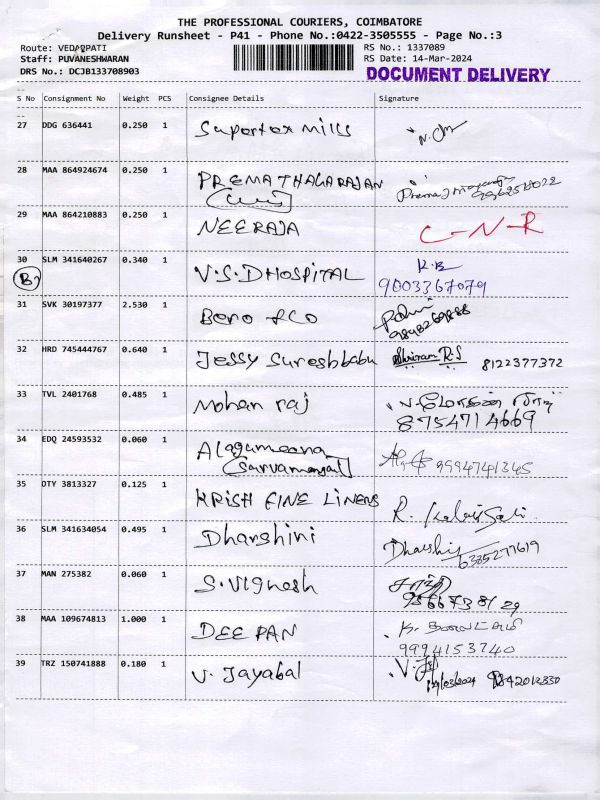 THE PROFESSIONAL COURIERS, COIMBATORE
Delivery Runsheet - P41 - Phone No.:0422-3505555 - Page No.:3
Route: VEDAPATI RS No.: 1337089
Staff: PUVANESHWARAN RS Date: 14-Mar-2024
DRS No.: DCJB133708903 DOCUMENT DELIVERY
S No Consignment No Weight PCS Consignee Details Signature
27 DDG 636441 0.250 1 Supertex mills
28 MAA 864924674 0.250 1 PREMA THAGARAJAN
29 MAA 864210883 0.250 1 NEERAJA C-N-R
30 SLM 341640267 0.340 1 V.S.D HOSPITAL K.B
B 9003367079
31 SVK 30197377 2.530 1 Bero & co
32 HRD 745444767 0.640 1 Jessy Sureshbabu Shriram R.S 8122377372
33 TVL 2401768 0.485 1 Mohan raj
8754714669
34 EDQ 24593532 0.060 1 Alagumeena
9994741345
35 OTY 3813327 0.125 1 KRISH FINE LINERS
36 SLM 341634054 0.495 1 Dharshini Dharshini
6385277619
37 MAN 275382 0.060 1 S. Vignesh
38 MAA 109674813 1.000 1 DEEPAN
9994153740
39 TRZ 150741888 0.180 1 V. Jayabal
9842012330